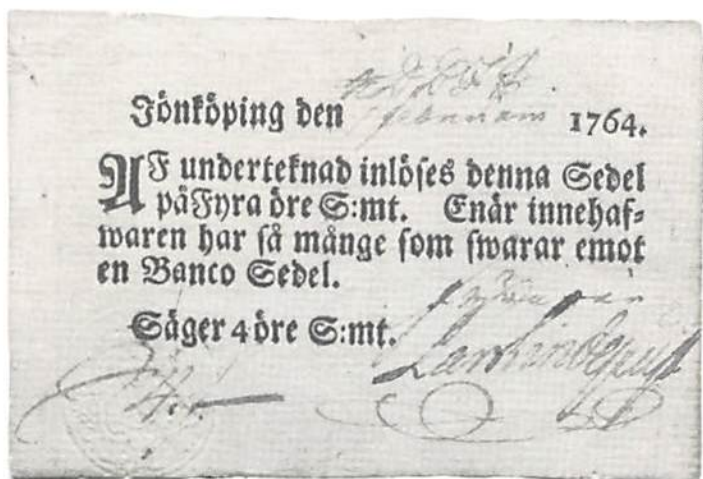 Jönköping den februarii 1764.
AF underteknad inlöses denna Sedel
på Fyra öre S:mt. Enär innehaf-
waren har så månge som swarar emot
en Banco Sedel.
Säger 4 öre S:mt.